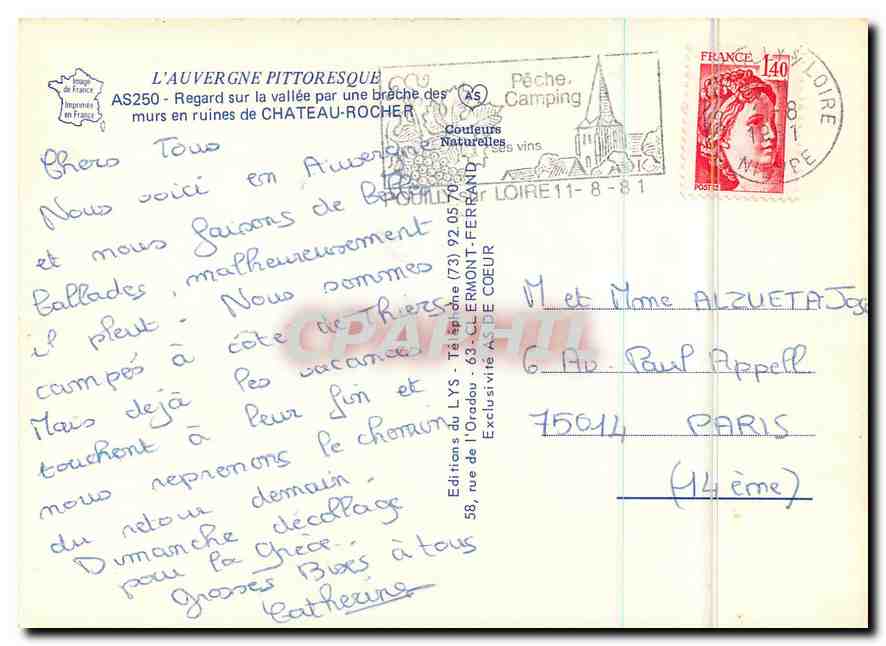 Image
de France
Imprimée
en France
L'AUVERGNE PITTORESQUE
AS250 - Regard sur la vallée par une brèche des
murs en ruines de CHATEAU-ROCHER
AS
Couleurs
Naturelles
Pêche.
Camping
ses vins
POUILLY sur LOIRE 11-8-81
FRANCE
1,40
POSTES
LOIRE
NIEVRE
Chers Tous
Nous voici en Auvergne
et nous faisons de belles
ballades, malheureusement
il pleut. Nous sommes
campés à côté de Thiers.
Mais dejà les vacances
touchent à leur fin et
nous reprenons le chemin
du retour demain.
Dimanche décollage
pour la Grèce..
grosses Bises à tous
Catherine
Editions du LYS - Téléphone (73) 92.05.70
58, rue de l'Oradou - 63-CLERMONT-FERRAND
Exclusivité AS DE COEUR
M et Mme ALZUETA José
6 Av. Paul Appell
75014 PARIS
(14ème)
CPAPHIL